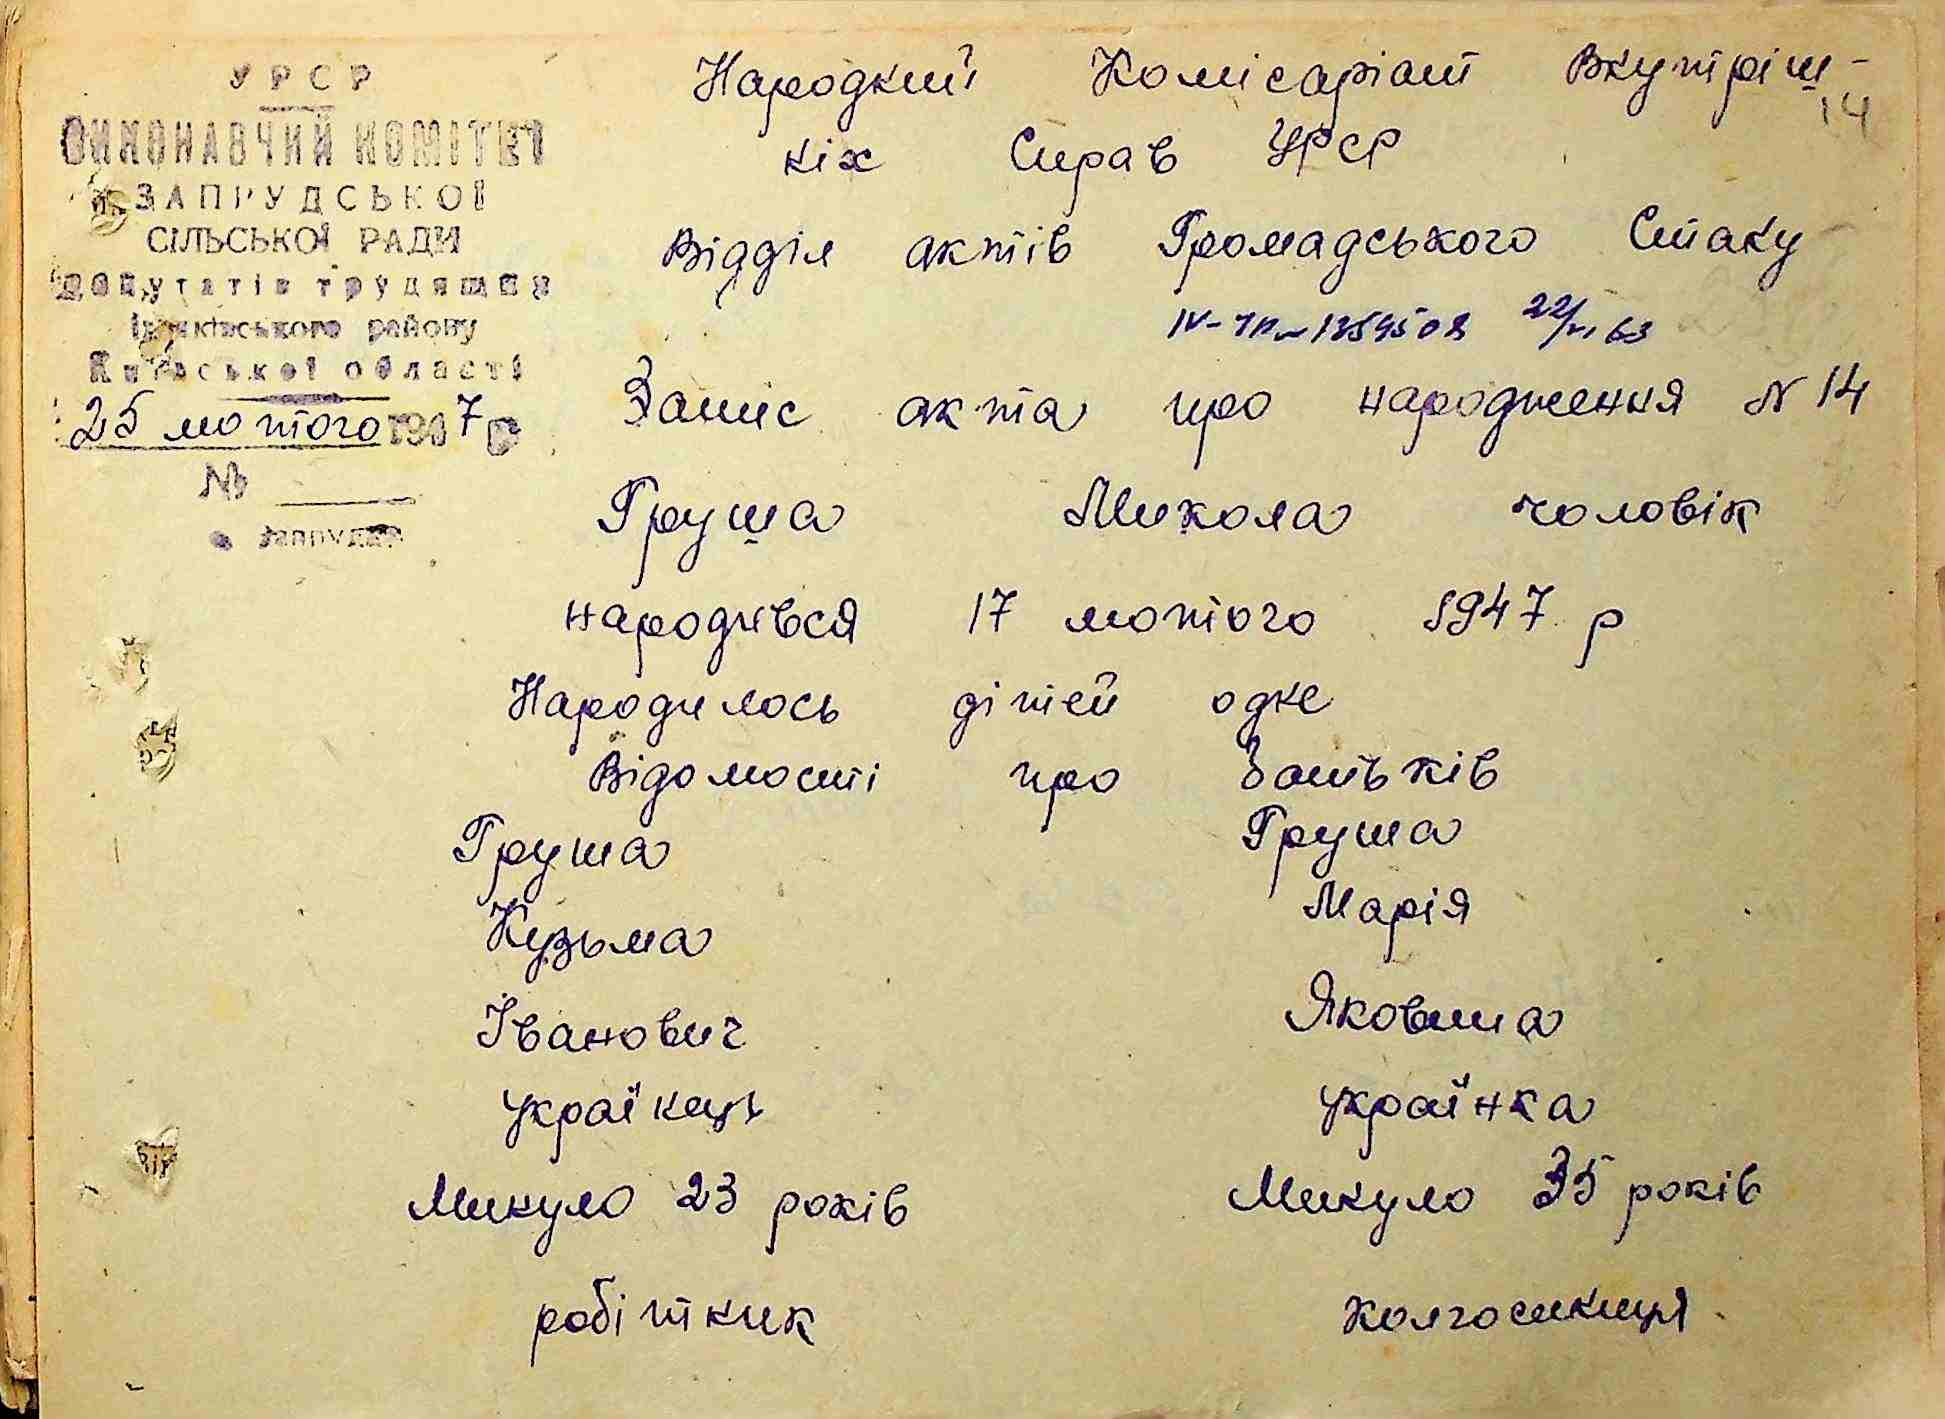 УРСР
ВИКОНАВЧИЙ КОМІТЕТ
ЗАПРУДСЬКОЇ
СІЛЬСЬКОЇ РАДИ
депутатів трудящих
району
Київської області
25 лютого 1947 р
№
с. Запруддя
Народний Комісаріат Внутріш-
14
ніх Справ УРСР
Відділ актів Громадського Стану
63
Запис акта про народження N 14
Груша Микола чоловік
народився 17 лютого 1947 р
Народилось дітей одне
Відомості про батьків
Груша Груша
Кузьма Марія
Іванович Яковшна
українець українка
Минуло 23 років Минуло 35 років
робітник колгоспниця